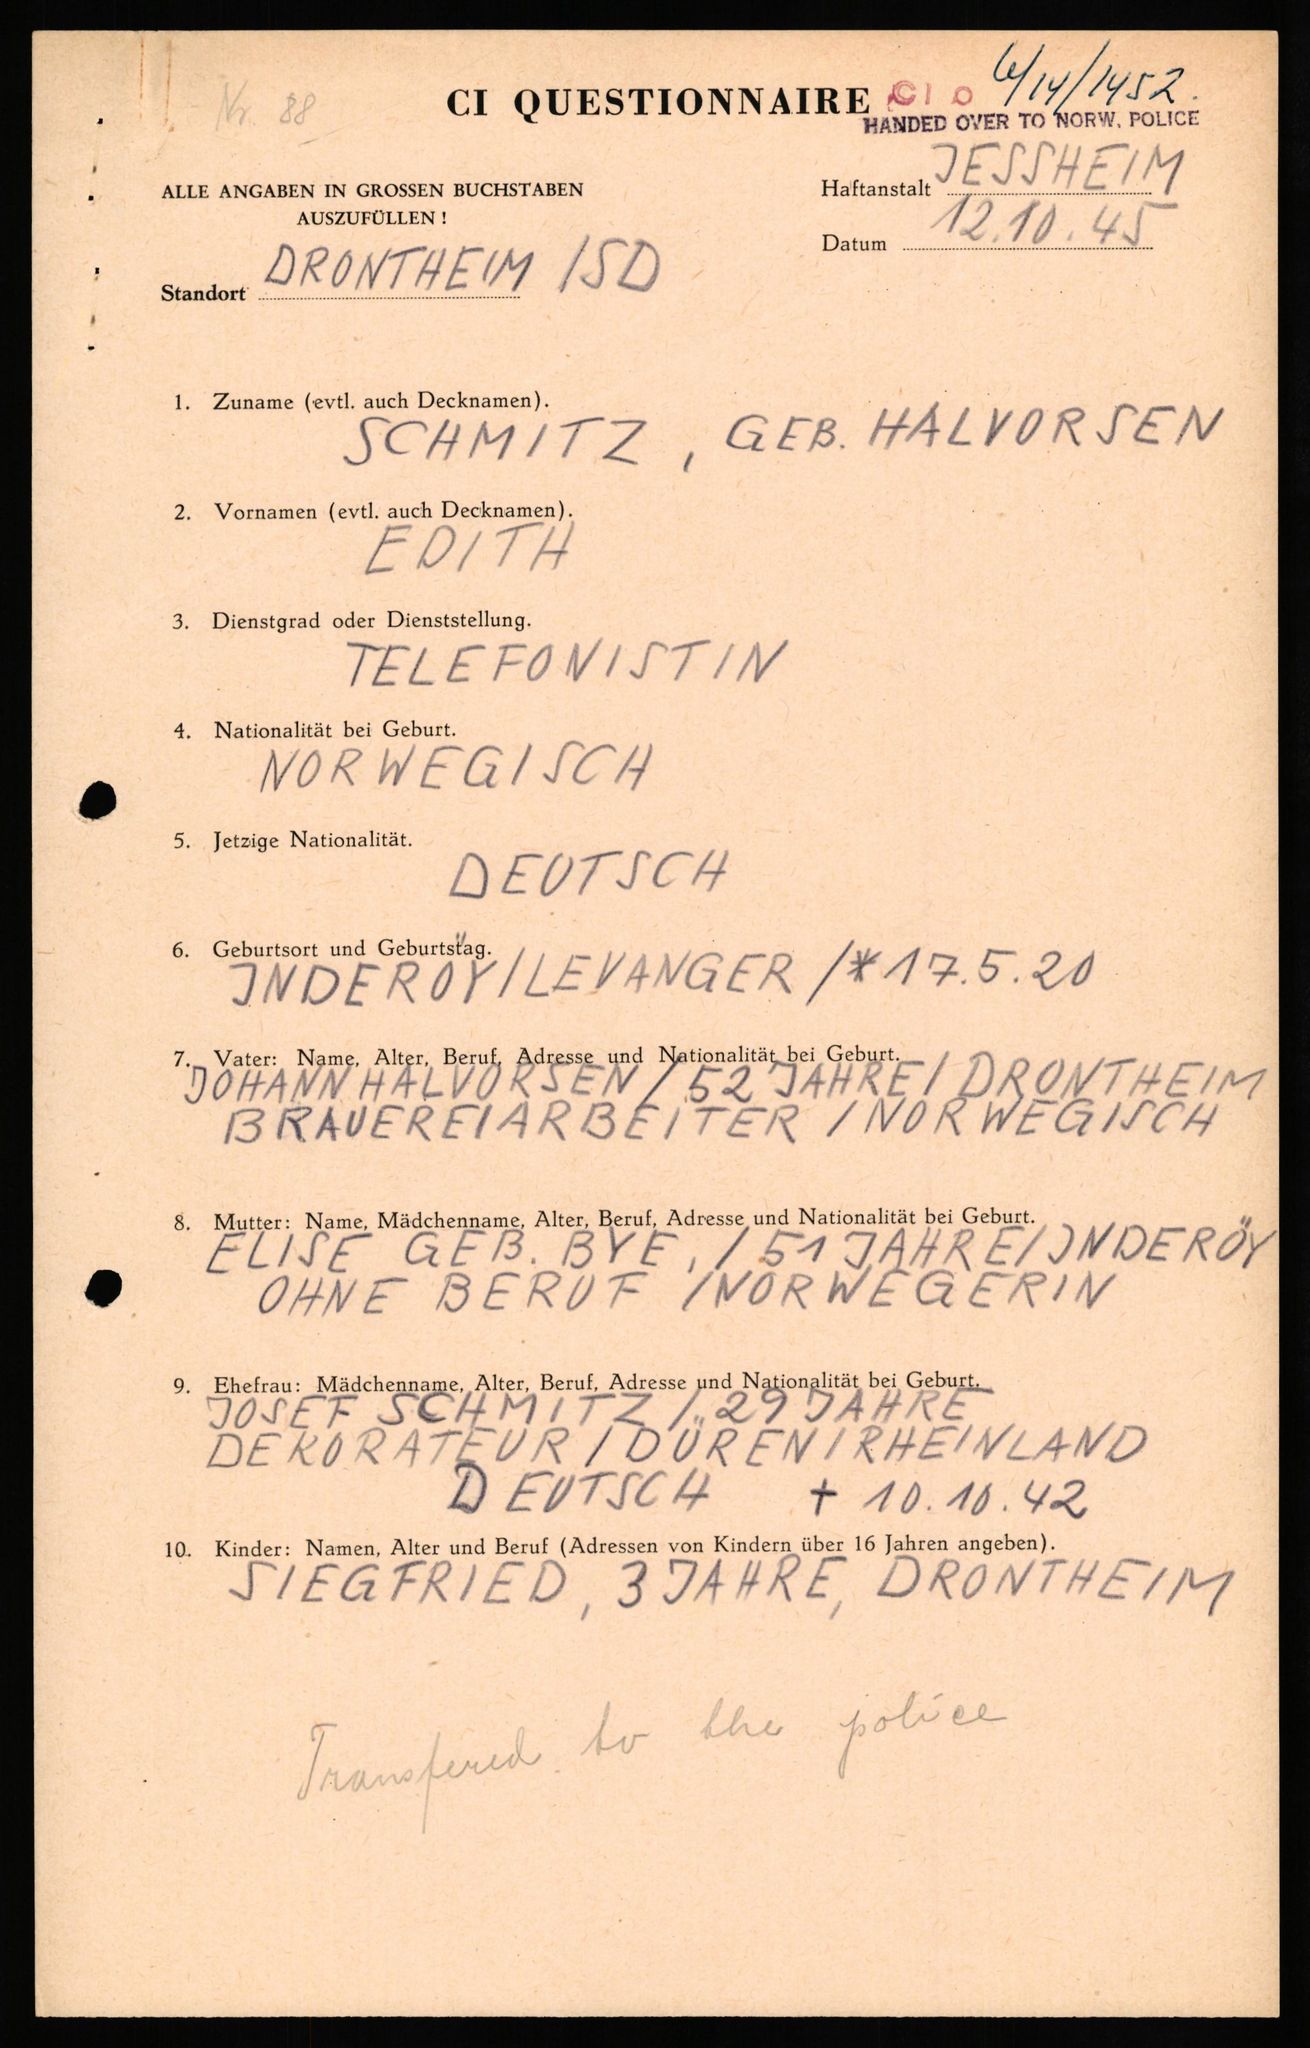 Nr. 88
CI QUESTIONNAIRE
6/14/1452.
HANDED OVER TO NORW. POLICE
ALLE ANGABEN IN GROSSEN BUCHSTABEN
AUSZUFÜLLEN !
Haftanstalt JESSHEIM
Datum 12.10.45
Standort DRONTHEIM / SD
1. Zuname (evtl. auch Decknamen).
SCHMITZ, GEB. HALVORSEN
2. Vornamen (evtl. auch Decknamen).
EDITH
3. Dienstgrad oder Dienststellung.
TELEFONISTIN
4. Nationalität bei Geburt.
NORWEGISCH
5. Jetzige Nationalität.
DEUTSCH
6. Geburtsort und Geburtstag.
INDERÖY / LEVANGER / * 17.5.20
7. Vater: Name, Alter, Beruf, Adresse und Nationalität bei Geburt.
JOHANN HALVORSEN / 52 JAHRE / DRONTHEIM
BRAUEREIARBEITER / NORWEGISCH
8. Mutter: Name, Mädchenname, Alter, Beruf, Adresse und Nationalität bei Geburt.
ELISE GEB. BYE, / 51 JAHRE / INDERÖY
OHNE BERUF / NORWEGERIN
9. Ehefrau: Mädchenname, Alter, Beruf, Adresse und Nationalität bei Geburt.
JOSEF SCHMITZ / 29 JAHRE
DEKORATEUR / DÜREN / RHEINLAND
DEUTSCH † 10.10.42
10. Kinder: Namen, Alter und Beruf (Adressen von Kindern über 16 Jahren angeben).
SIEGFRIED, 3 JAHRE, DRONTHEIM
Transfered to the police